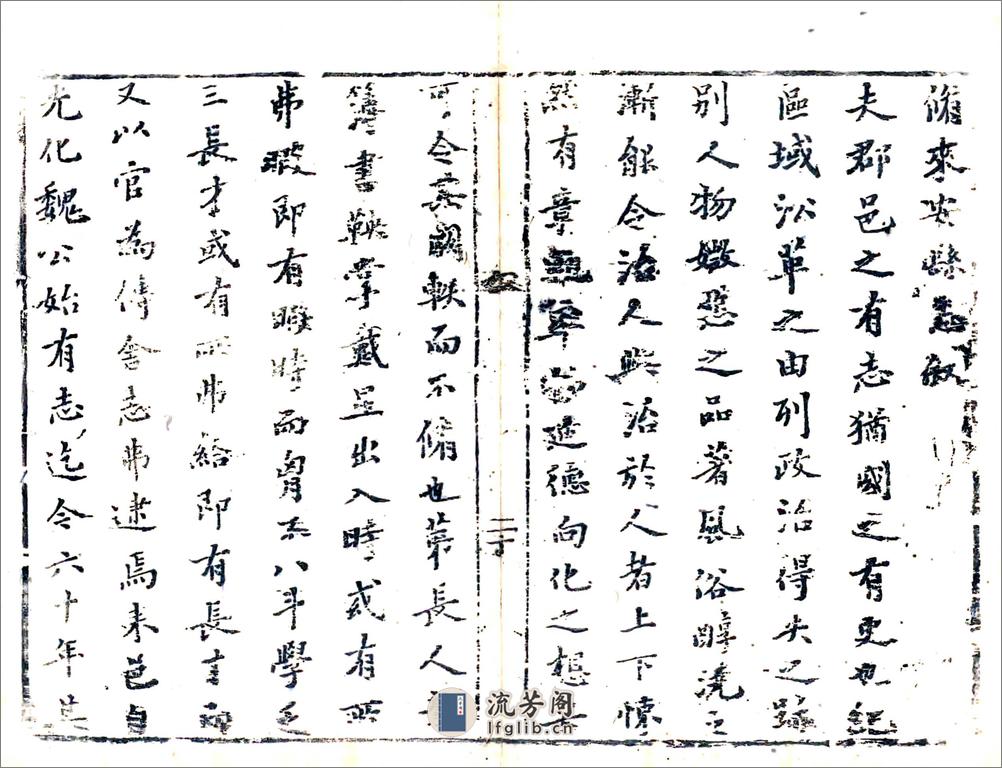 脩來安縣志敘
夫郡邑之有志猶國之有史也紀
區域以單之由列政治得失之跡
別人物媺慝之品著風俗醇澆之
漸能令治人與治於人者上下憬
然有章 遷德向化之想
可令其闕軼而不脩也第長人
簿書鞅掌戴星出入時或有所
弗暇即有暇時而胷不八斗學乏
三長才或有所弗給即有長才而
又以官為傳舍志弗逮焉來邑自
光化魏公始有志迄今六十年
二丁
流芳阁
lfglib.cn